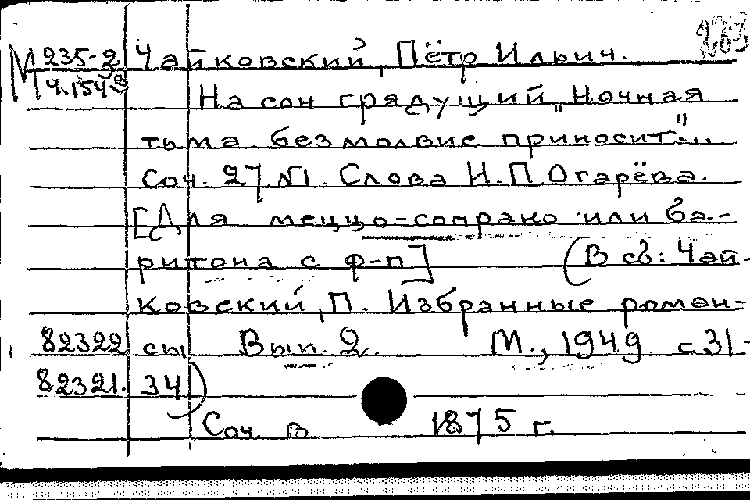 М 235-2 Чайковский, Пётр Ильич. 263
Ч.1549
На сон грядущий „Ночная
тьма безмолвие приносит"...
Соч. 27, №1. Слова Н.П. Огарёва.
[Для меццо-сопрано или ба-
ритона с ф-п] (В сб: Чай-
ковский, П. Избранные роман-
82322 сы Вып. 2. М., 1949 с. 31-
82321. 34)
Соч. в 1875 г.